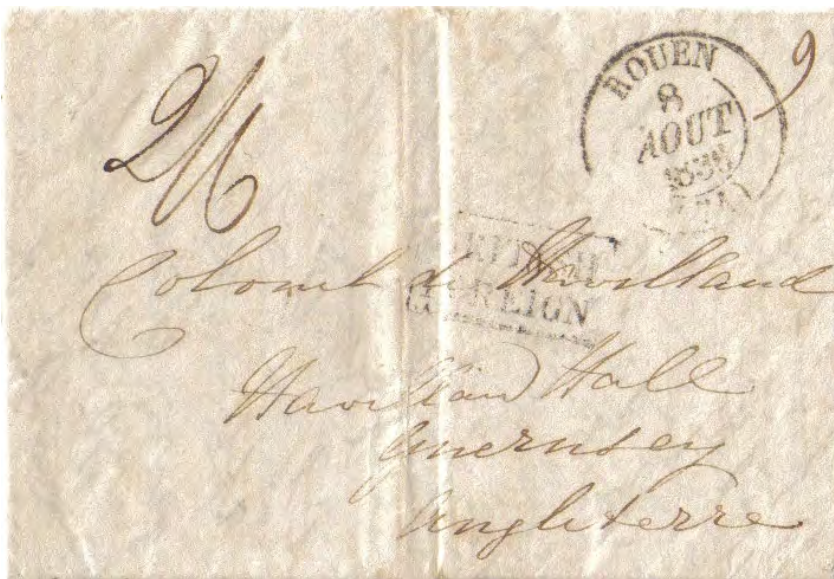 ROUEN
9
8
AOUT
2/6
BRITISH
FOREIGN
Colonel de Havilland
Havilland Hall
Guernsey
Angleterre